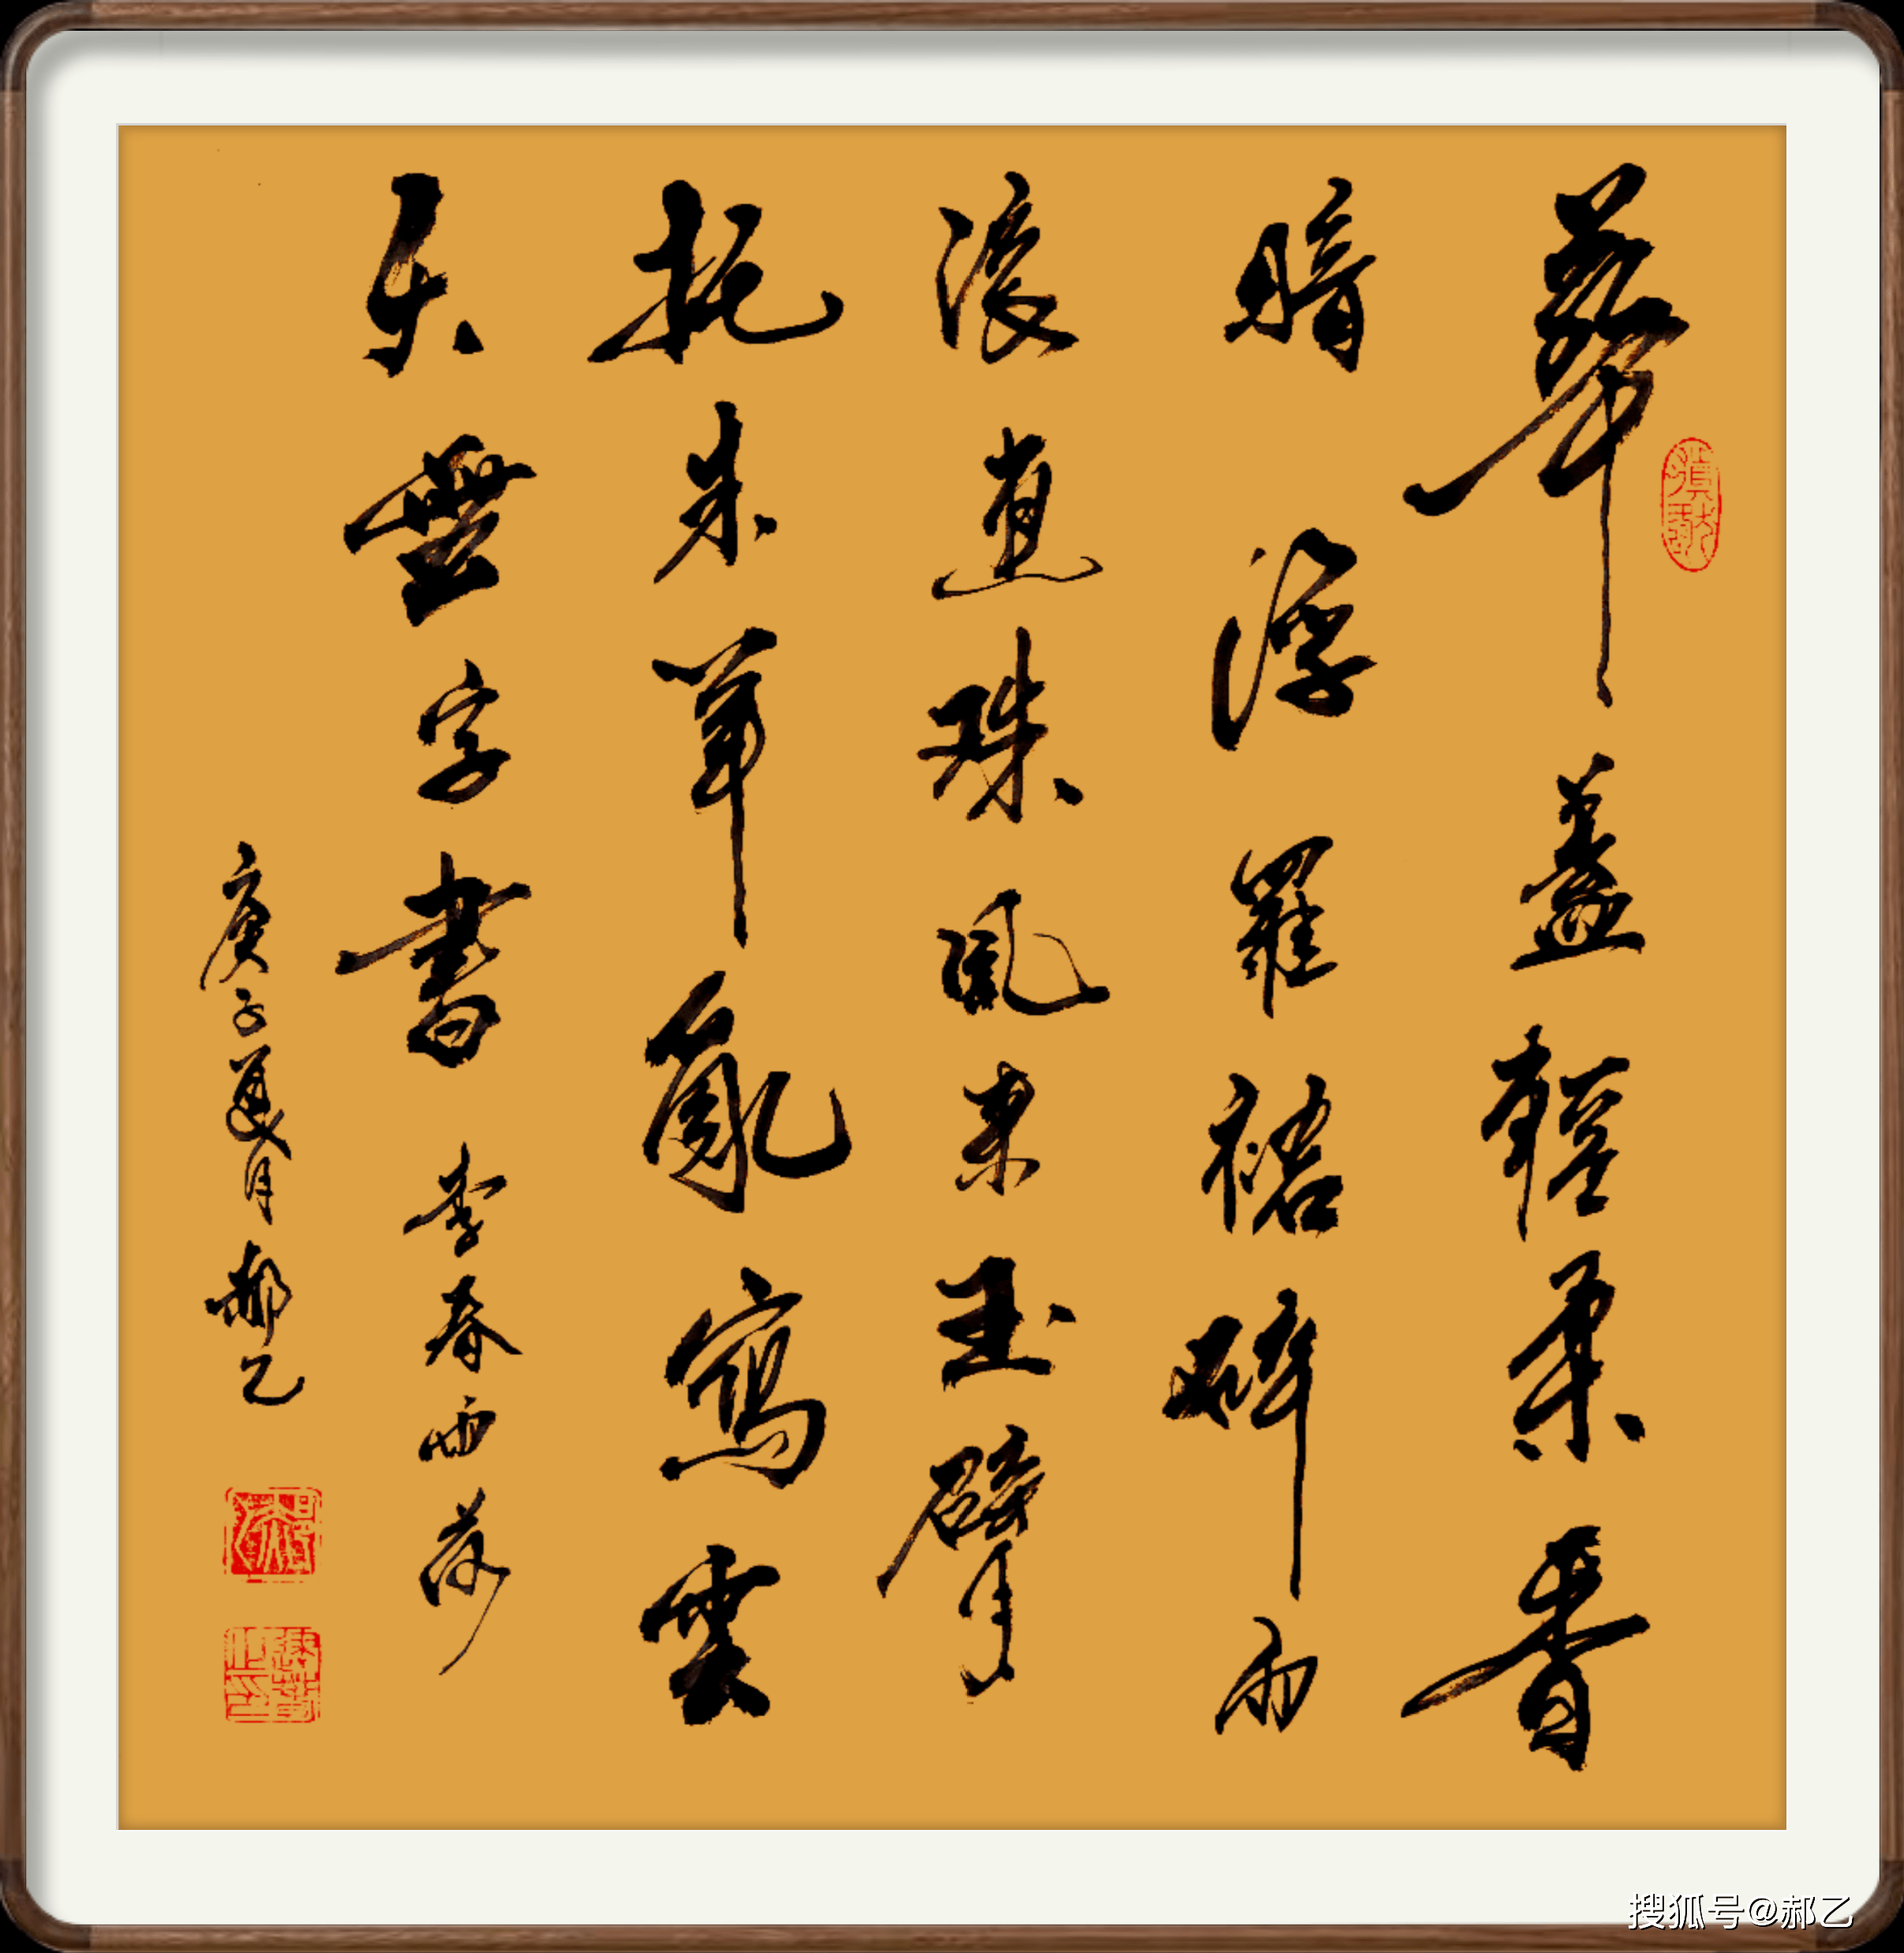 翠蓋輕柔香
暗浮羅裙碎雨
滾連珠風來玉臂
托朱筆亂寫雲
天無字書 李春雨荷
庚子夏月郝乙
搜狐号@郝乙